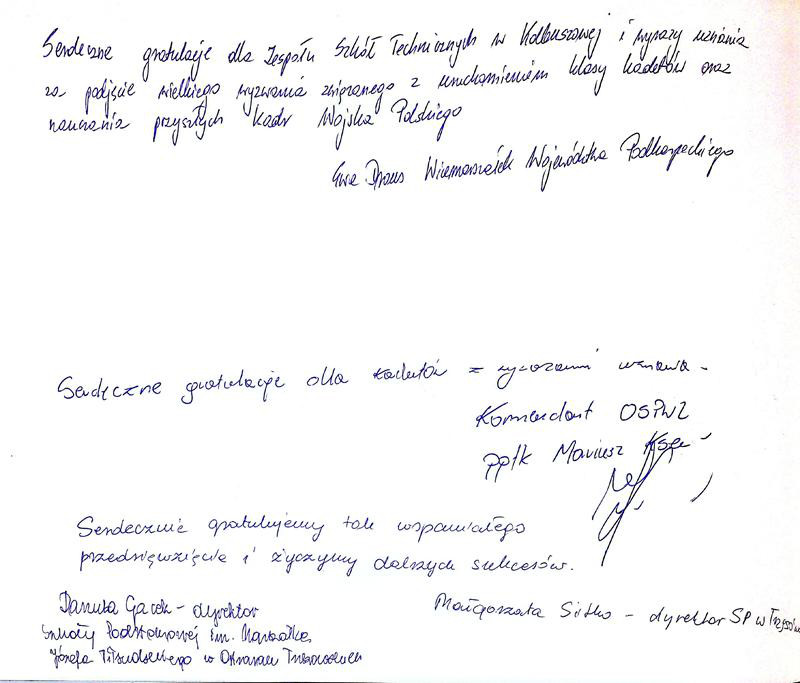 Serdeczne gratulacje dla Zespołu Szkół Technicznych w Kolbuszowej i wyrazy uznania
za podjęcie wielkiego wyzwania związanego z uruchomieniem klasy kadetów oraz
nauczania przyszłych kadr Wojska Polskiego
Ewa Draus Wicemarszałek Województwa Podkarpackiego
Serdeczne gratulacje dla kadetów z wyrazami uznania
Komendant OSPWL
ppłk Mariusz
Serdecznie gratulujemy tak wspaniałego
przedsięwzięcia i życzymy dalszych sukcesów.
Danuta Gacek - dyrektor
Małgorzata Sitko - dyrektor SP w
Szkoły Podstawowej im. Marszałka
Józefa Piłsudskiego w